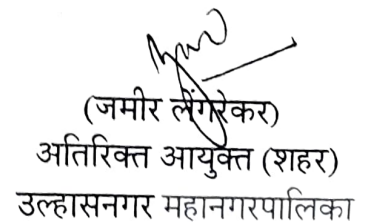 (जमीर लेंगरेकर)
अतिरिक्त आयुक्त (शहर)
उल्हासनगर महानगरपालिका